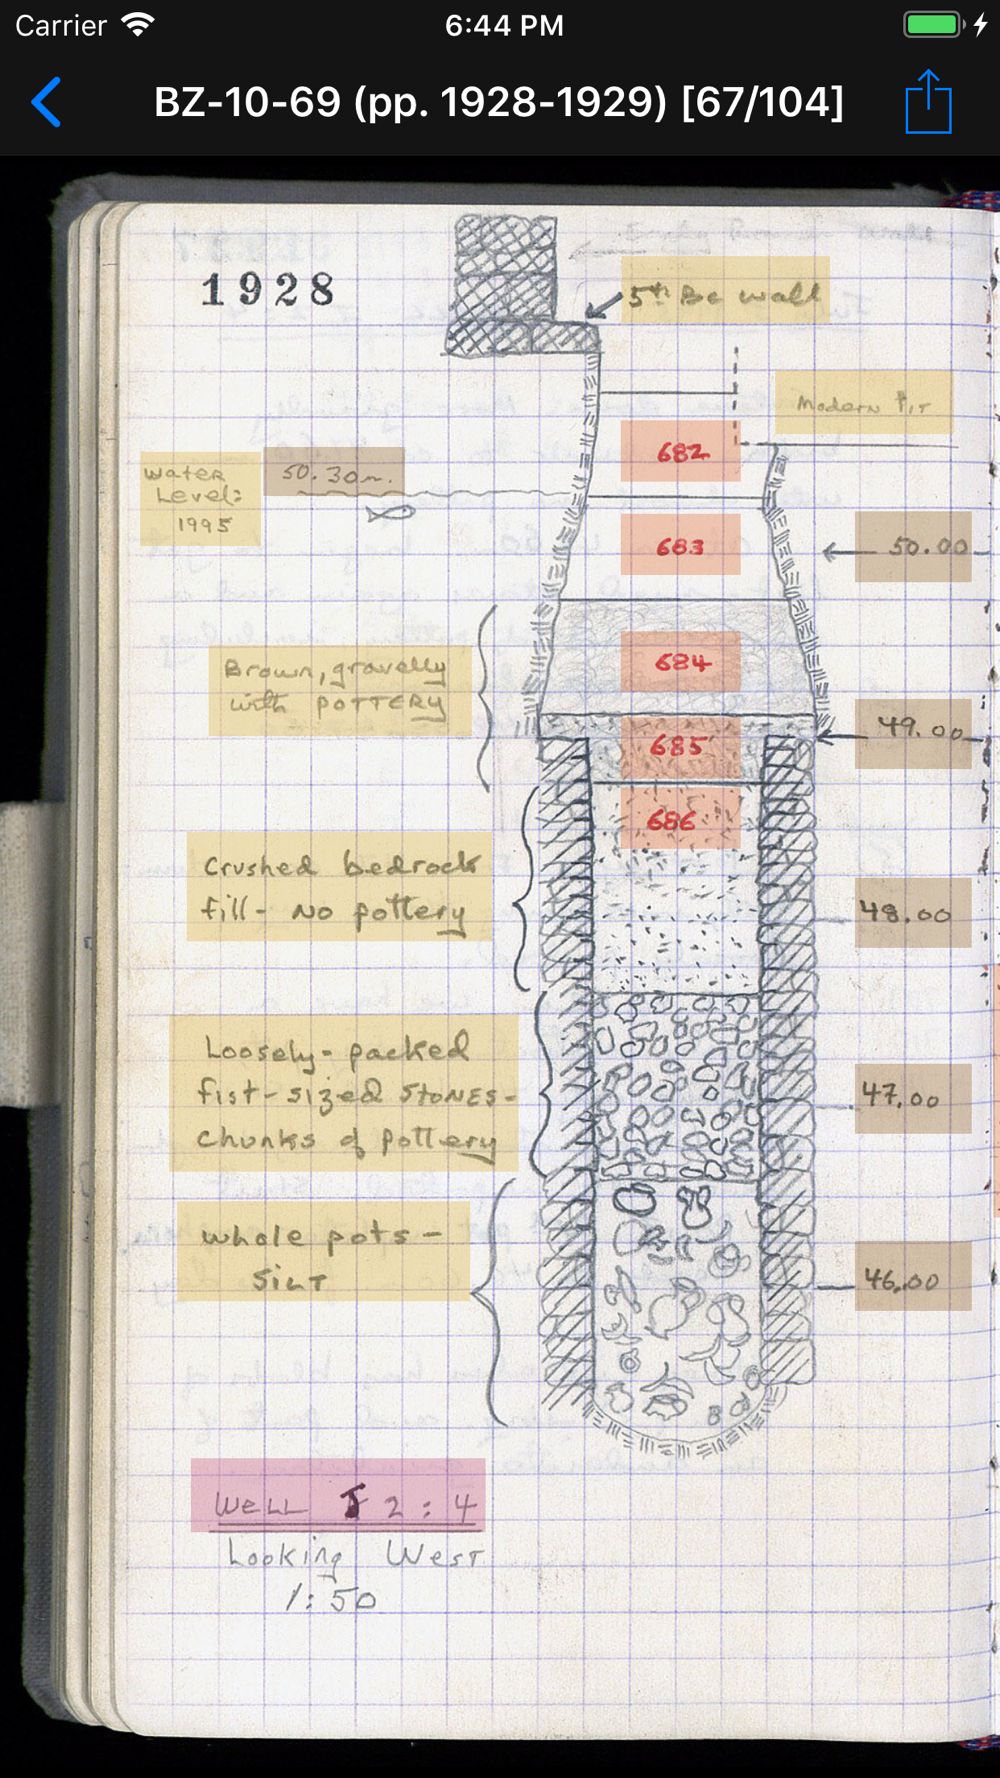 Carrier
6:44 PM
BZ-10-69 (pp. 1928-1929) [67/104]
1928
5th BC wall
Modern Pit
682
Water
Level:
1995
50.30m.
683
50.00
684
Brown, gravelly
with POTTERY
49.00
685
686
Crushed bedrock
fill - No pottery
48.00
Loosely-packed
fist-sized STONES -
chunks of pottery
47.00
whole pots -
SILT
46.00
WELL J 2 : 4
Looking West
1:50